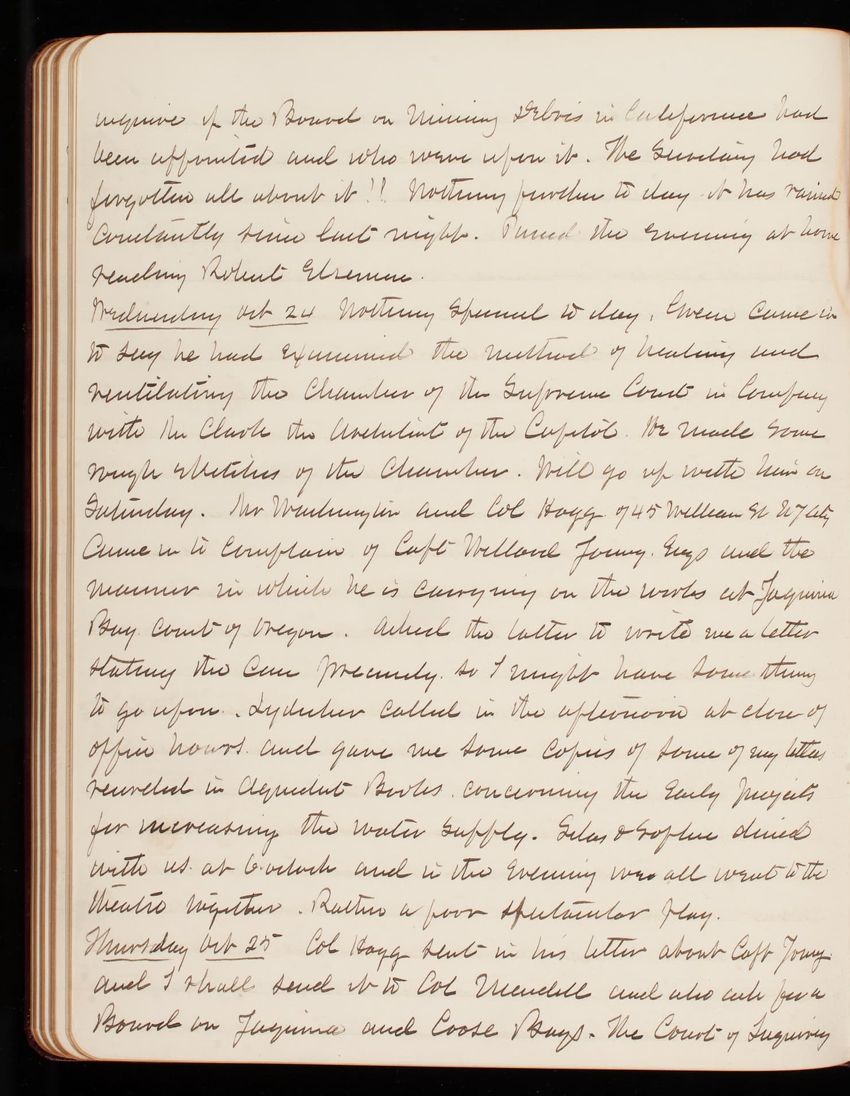 inquire if the Board on Mining Debris in California had
been appointed and who were upon it. The Secretary had
forgotten all about it!! Nothing further to day it has rained
Constantly since last night. Passed the evening at home
reading Robert Elsemere.
Wednesday Oct 24 Nothing Special to day. Green Came in
to say he had examined the method of heating and
ventilating the Chamber of the Supreme Court in Company
with Mr Clark the Architect of the Capitol. He made some
rough sketches of the Chamber. Will go up with him on
Saturday. Mr Washington and Col Hogg of 45 William St N Y City
Came in to Complain of Capt Willard Young. Engs and the
manner in which he is carrying on the works at Yaquina
Bay. Coast of Oregon. Asked the latter to write me a letter
stating the Case precisely. so I might have some thing
to go upon. Lydecker called in the afternoon at close of
office hours. and gave me some Copies of some of my letters
recorded in Aqueduct Books. concerning the Early projects
for increasing the water supply. Silas & Sophie dined
with us at 6 oclock and in the Evening we all went to the
theatre together. Rather a poor spectacular play.
Thursday Oct 25 Col Hogg sent in his letter about Capt Young
and I shall send it to Col Mendell and also ask for a
Board on Yaquina and Coose Bays. The Court of Inquiry